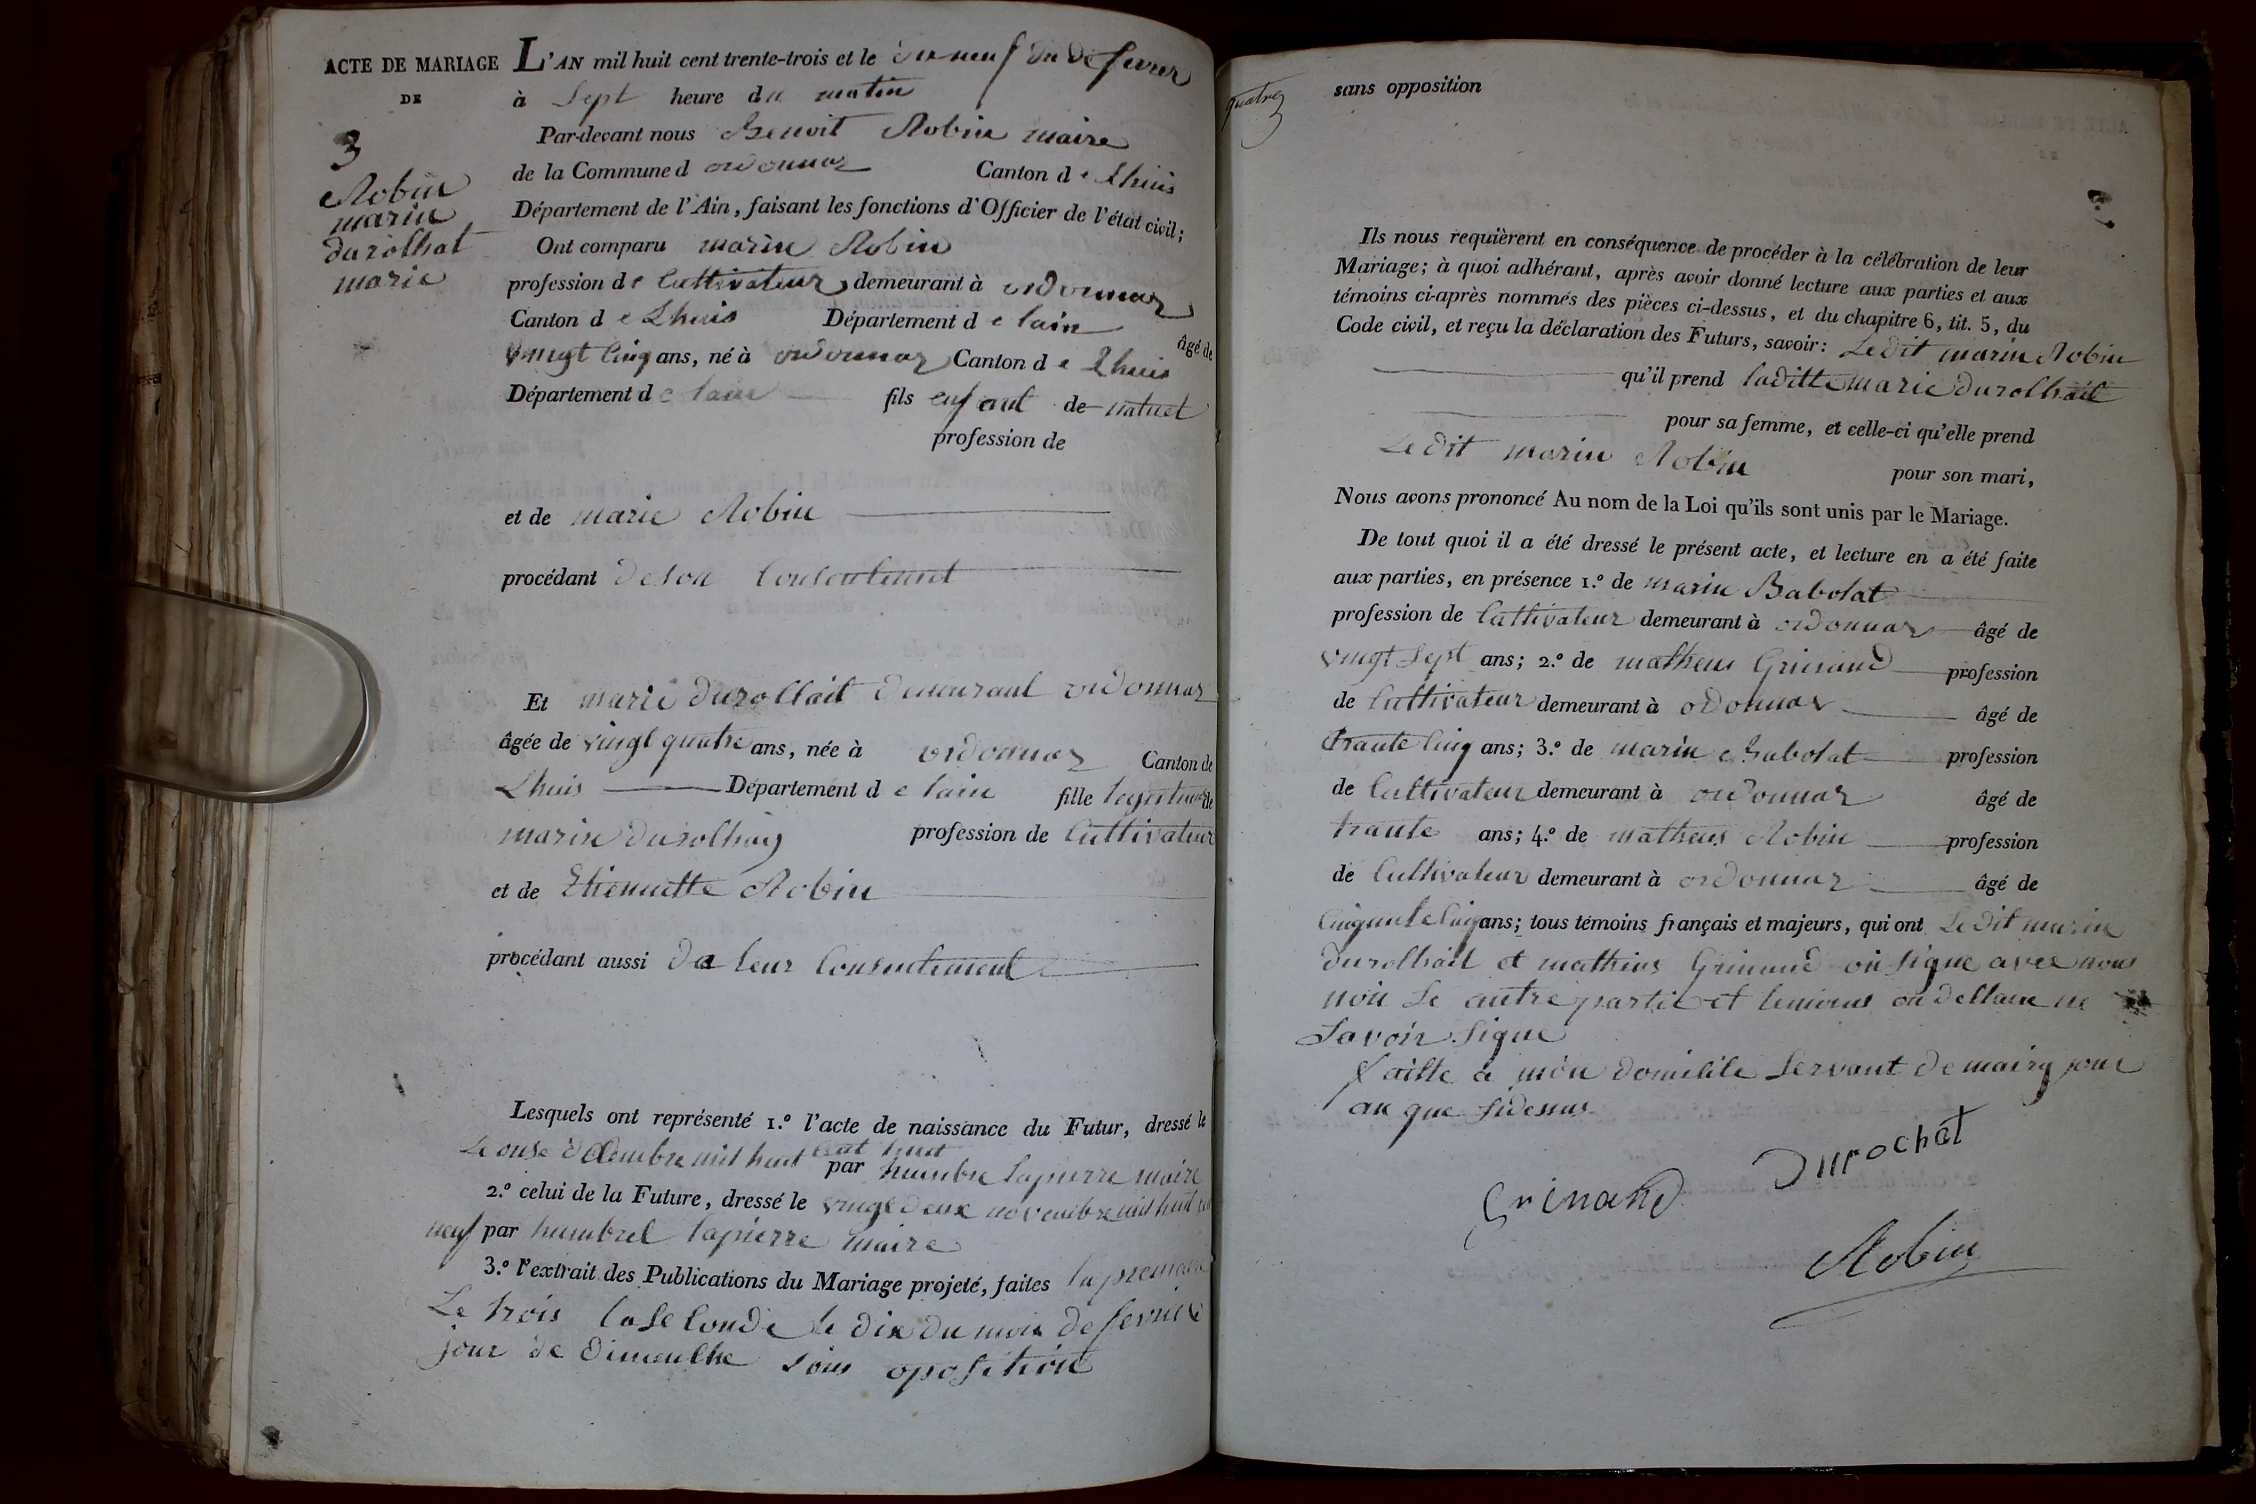 ACTE DE MARIAGE
DE
3
Robin
marin
durolhat
marie
L'AN mil huit cent trente-trois et le dix neuf du de fevrier
à Sept heure du matin
Par-devant nous Benoit Robin maire
de la Commune d ordonnaz Canton de Lhuis
Département de l'Ain, faisant les fonctions d'Officier de l'état civil;
Ont comparu marin Robin
profession de Cultivateur demeurant à ordonnaz
Canton de Lhuis Département de lain âgé de
vingt Cinq ans, né à ordonnaz Canton de Lhuis
Département de lain fils enfant de naturel
profession de
et de marie Robin
procédant de son Consentement
Et marie durollait demeurant ordonnaz
âgée de vingt quatre ans, née à ordonnaz Canton de
Lhuis Département de lain fille legitime de
marin durolhay profession de Cultivateur
et de Etiennette Robin
procédant aussi de leur Consentement
Lesquels ont représenté 1.º l'acte de naissance du Futur, dressé le
Le onse mil huit cent huit
par humbre lapierre maire
2.º celui de la Future, dressé le vingt deux novembre mil huit cen
neuf par humbrel lapierre maire
3.º l'extrait des Publications du Mariage projeté, faites la premiere
Le trois la seConde le dix du mois de fevrier
jour de dimenche sans oposition
quatre
sans opposition
Ils nous requièrent en conséquence de procéder à la célébration de leur
Mariage; à quoi adhérant, après avoir donné lecture aux parties et aux
témoins ci-après nommés des pièces ci-dessus, et du chapitre 6, tit. 5, du
Code civil, et reçu la déclaration des Futurs, savoir: Ledit marin Robin
qu'il prend laditte marie durolhait
pour sa femme, et celle-ci qu'elle prend
Ledit marin Robin pour son mari,
Nous avons prononcé Au nom de la Loi qu'ils sont unis par le Mariage.
De tout quoi il a été dressé le présent acte, et lecture en a été faite
aux parties, en présence 1.º de marin Babolat
profession de Cultivateur demeurant à ordonnaz âgé de
vingt Sept ans; 2.º de matheus Grinand profession
de Cultivateur demeurant à ordonnaz âgé de
trante Cinq ans; 3.º de marin Babolat profession
de Cultivateur demeurant à ordonnaz âgé de
trante ans; 4.º de matheus Robin profession
de Cultivateur demeurant à ordonnaz âgé de
Cinquante Cinq ans; tous témoins français et majeurs, qui ont Ledit marin
durolhait et mathius Grinand on signe avec nous
non le autre partie et temoins on dellare ne
savoir signe
faitte a mon domicile Servant de mairy jour
an que sidessus
Grinand
Durochat
Robin